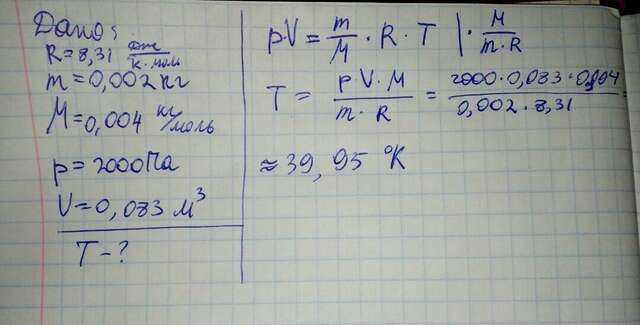 Дано:
R=8,31 Дж/К·моль
m=0,002кг
M=0,004 кг/моль
p=2000Па
V=0,083 м³
T-?
p·V = m/M · R · T | · M/m·R
T = p·V·M/m·R = 2000·0,083·0,004/0,002·8,31 =
≈39,95 °K